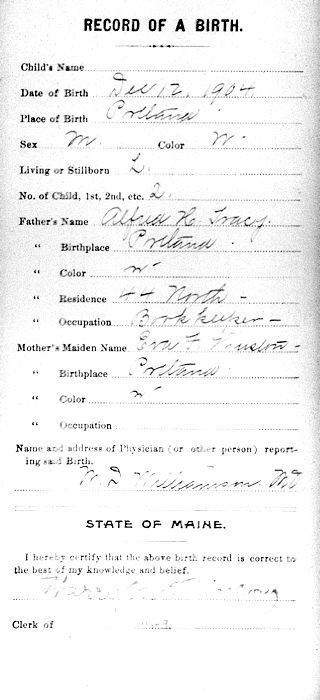 RECORD OF A BIRTH.
Child's Name
Date of Birth Dec 12, 1904
Place of Birth Portland
Sex M. Color W.
Living or Stillborn L.
No. of Child, 1st, 2nd, etc. 2
Father's Name Alfred H. Tracy.
" Birthplace Portland.
" Color W
" Residence 44 North -
" Occupation Book keeper -
Mother's Maiden Name Eva F. Winslow -
" Birthplace Portland
" Color W
" Occupation
Name and address of Physician (or other person) report-
ing said Birth.
W. D. Williamson MD
STATE OF MAINE.
I hereby certify that the above birth record is correct to
the best of my knowledge and belief.
Clerk of